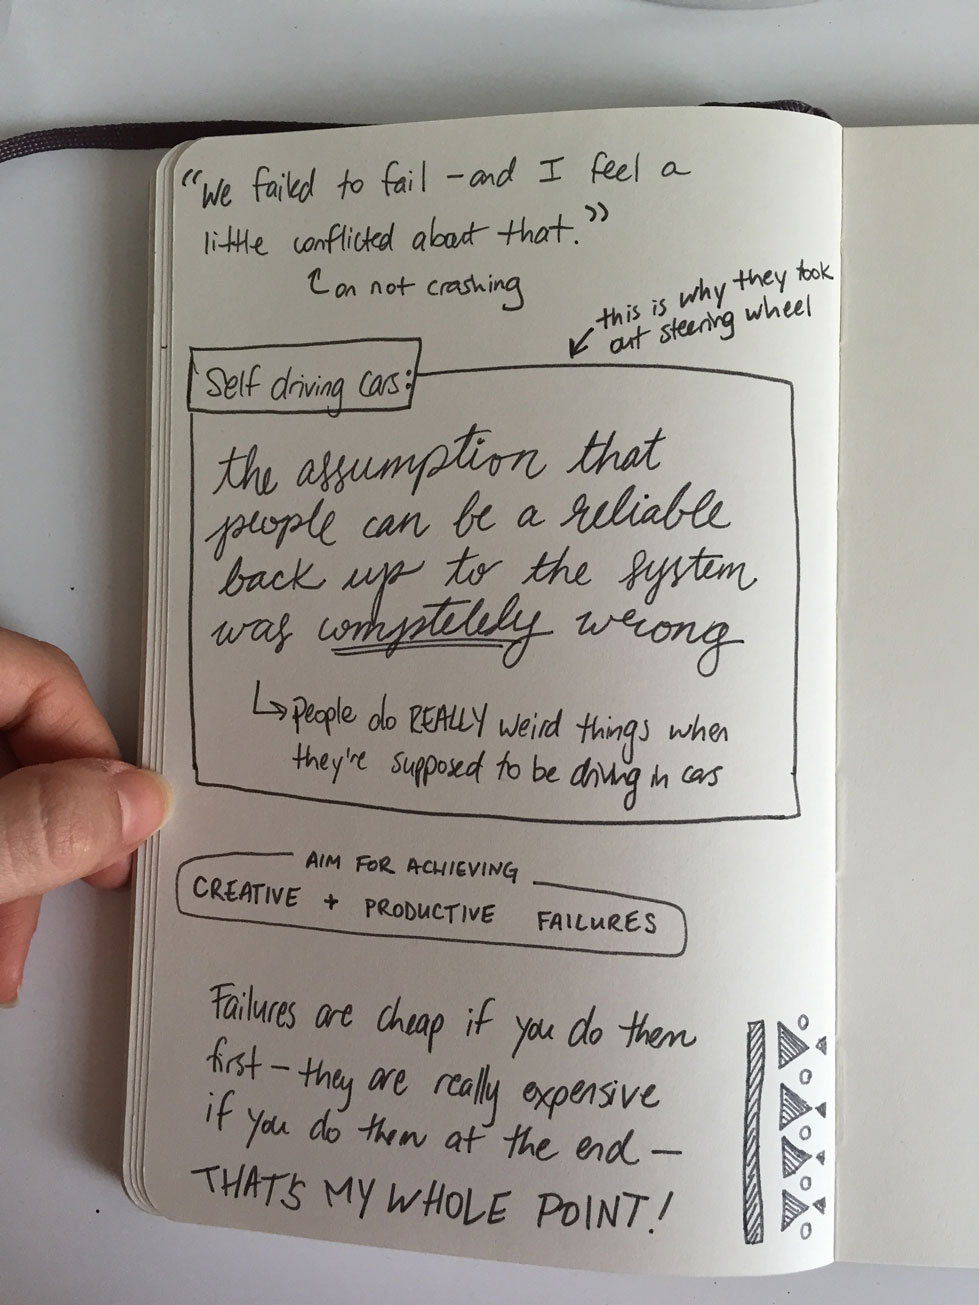 "We failed to fail – and I feel a
little conflicted about that."
on not crashing
this is why they took
out steering wheel
Self driving cars:
the assumption that
people can be a reliable
back up to the system
was completely wrong
people do REALLY weird things when
they're supposed to be driving in cars
AIM FOR ACHIEVING
CREATIVE + PRODUCTIVE FAILURES
Failures are cheap if you do them
first – they are really expensive
if you do them at the end –
THAT'S MY WHOLE POINT!